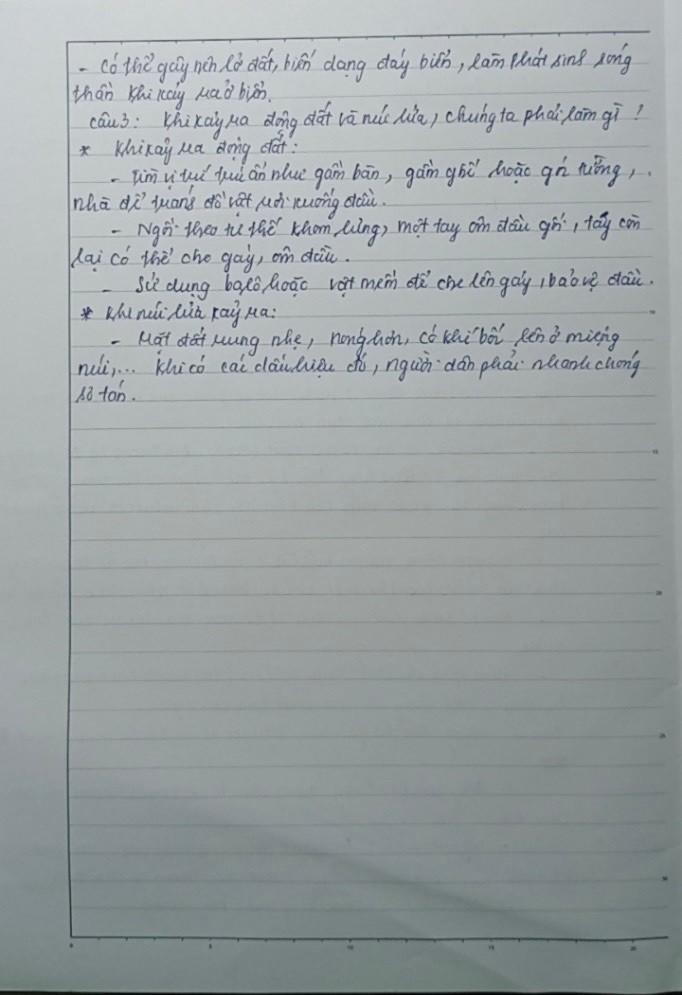 - Có thể gây nên lở đất, biến dạng đáy biển, làm phát sinh sóng
thần khi xảy ra ở biển.
Câu 3: Khi xảy ra động đất và núi lửa, chúng ta phải làm gì?
* Khi xảy ra động đất:
- Tìm vị trí trú ẩn như gầm bàn, gầm ghế hoặc góc tường,
nhà để tránh đồ vật rơi xuống đầu.
- Ngồi theo tư thế khom lưng, một tay ôm đầu gối, tay còn
lại có thể che gáy, ôm đầu.
- Sử dụng balô hoặc vật mềm để che lên gáy, bảo vệ đầu.
* Khi núi lửa xảy ra:
- Mặt đất rung nhẹ, nóng hơn, có khí bốc lên ở miệng
núi,... khi có các dấu hiệu đó, người dân phải nhanh chóng
sơ tán.
5
10
15
20